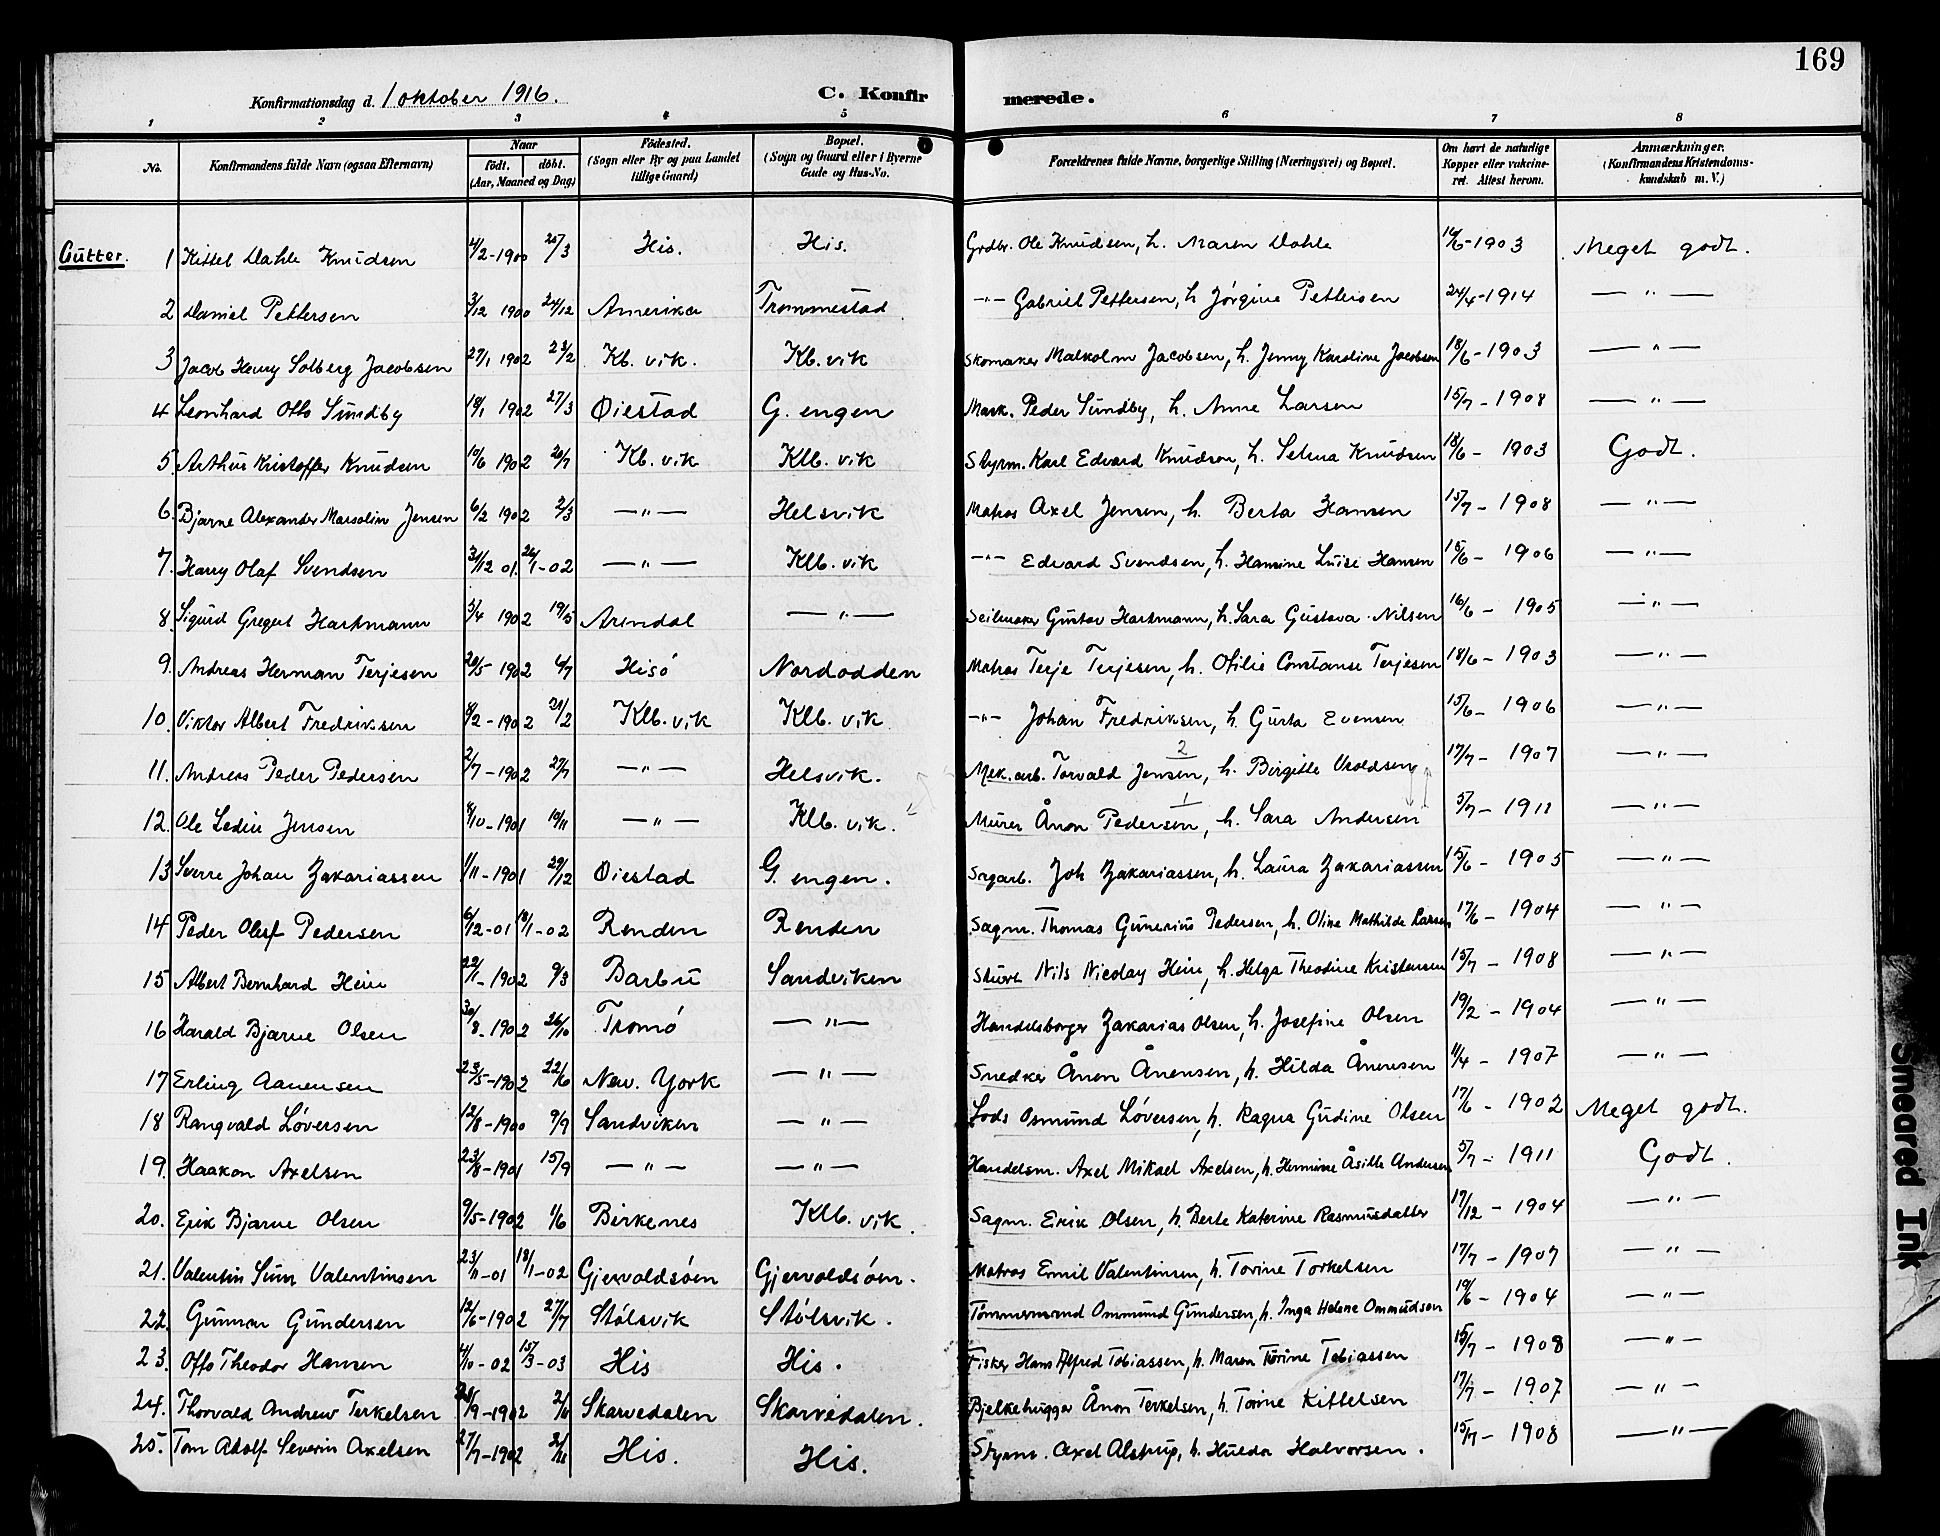 169
Konfirmationsdag d. 1 oktober 1916. C. Konfirmerede.
1 2 3 4 5 6 7 8
No. Konfirmandens fulde Navn (ogsaa Efternavn) Naar født. døbt. (Aar, Maaned og Dag) Fødested. (Sogn eller By og paa Landet tillige Gaard) Bopæl. (Sogn og Gaard eller i Byerne Gade og Hus-No. Forældrenes fulde Navne, borgerlige Stilling (Næringsvei) og Bopæl. Om havt de naturlige Kopper eller vakcineret. Attest herom. Anmærkninger. (Konfirmandens Kristendomskundskab m. V.)
Gutter. 1 Kittel Dahle Knudsen 4/2-1900 25/3 His. His. Grdbr. Ole Knudsen, h. Maren Dahle 14/6-1903 Meget godt.
2 Daniel Pettersen 3/12 1900 24/12 Amerika Trommestad —"— Gabriel Pettersen, h. Jørgine Pettersen 24/4-1914 — " —
3 Jacob Henry Solberg Jacobsen 27/1 1902 23/2 Kb. vik. Kb. vik Skomaker Malkolm Jacobsen, h. Jenny Karoline Jacobsen 18/6-1903 — " —
4 Leonhard Otto Sundby 18/1 1902 27/3 Øiestad G. engen Mask. Peder Sundby, h. Anne Larsen 15/7-1908 — " —
5. Arthur Kristoffer Knudsen 10/6 1902 20/7 Kb. vik Klb. vik Styrm. Karl Edvard Knudsen, h. Selma Knudsen 18/6-1903 Godt.
6. Bjarne Alexander Marsolin Jensen 6/2 1902 2/3 — " — Helsvik Matros Axel Jensen, h. Berta Hansen 15/7-1908 — " —
7. Harry Olaf Svendsen 31/12 01. 26/1-02 — " — Klb. vik —"— Edvard Svendsen, h. Hansine Luise Hansen 15/6-1906 — " —
8. Sigurd Gregert Hartmann 5/4 1902 19/5 Arendal — " — Seilmaker Gustav Hartmann, h. Sara Gustava Nilsen 16/6-1905 — " —
9. Andreas Herman Terjesen 20/5-1902 6/7 Hisø Nordodden Matros Terje Terjesen, h. Otilie Constanse Terjesen 18/6-1903 — " —
10. Viktor Albert Fredriksen 4/2-1902 21/2 Klb. vik Klb. vik. —"— Johan Fredriksen, h. Gusta Evensen 15/6-1906 — " —
11. Andreas Peder Pedersen 2/7-1902 27/7 — " — Helsvik. Mek. arb. Torvald Jensen, 2 h. Birgitte Uroldsen 17/7-1907 — " —
12. Ole Ledin Jensen 4/10-1901 10/11 — " — Klb. vik. Murer Ånon Pedersen, 1 h. Sara Andersen 5/7-1911 — " —
13 Sverre Johan Zakariassen 1/11-1901 29/12 Øiestad G. engen. Sagarb. Joh Zakariassen, h. Laura Zakariassen 15/6-1905 — " —
14 Peder Oluf Pedersen 6/12-01 18/1-02 Renden Renden Sagm. Thomas Gunerius Pedersen, h. Oline Mathilde Larsen 17/6-1904 — " —
15 Albert Bernhard Hein 22/1-1902 9/3 Barbu Sandviken Stuert Nils Nicolay Hein, h. Helga Theodine Kristensen 15/7-1908 — " —
16 Harald Bjarne Olsen 30/8-1902 26/10 Tromø — " — Handelsborger Zakarias Olsen, h. Josefine Olsen 19/2-1904 — " —
17 Erling Aanensen 23/5-1902 22/6 New. York — " — Snedker Ånon Ånensen, h. Hilda Ånensen 11/4-1907 — " —
18 Rangvald Løversen 12/8-1900 9/9 Sandviken — " — Lods Osmund Løversen, h. Ragna Gudine Olsen 17/6-1902 Meget godt.
19. Haakon Axelsen 23/8-1901 15/9 — " — — " — Handelsm. Axel Mikael Axelsen, h. Hermine Åsille Andersen 5/7-1911 Godt.
20. Erik Bjarne Olsen 9/5-1902 1/6 Birkenes Klb. vik. Sagm. Erik Olsen, h. Berte Katerine Rasmusdatter 17/12-1904 — " —
21. Valentin Sunn Valentinsen 23/11-01 18/1-02 Gjervoldsøen Gjervoldsøen. Matros Ermil Valentinsen, h. Torine Torkelsen 17/7-1907 — " —
22. Gunnar Gundersen 12/6-1902 27/7 Stølsvik Stølsvik. Tømmermand Ommund Gundersen, h. Inga Helene Ommudsen 19/6-1904 — " —
23. Otto Theodor Hansen 4/10-02 15/3-03 His His. Fisker Hans Alfred Tobiassen, h. Maren Torine Tobiassen 15/7-1908 — " —
24. Thorvald Andrew Terkelsen 28/9-1902 2/11 Skarvedalen Skarvedalen. Bjelkehugger Ånon Terkelsen, h. Torine Kittelsen 17/7-1907 — " —
25. Tom Adolf Severin Axelsen 27/7-1902 His. His. Styrm. Axel Alstrup, h. Hulda Halvorsen. 15/7-1908 — " —
Smeared Ink